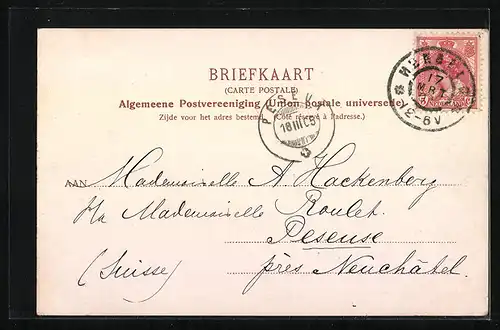 BRIEFKAART
(CARTE POSTALE)
Algemeene Postvereeniging (Union postale universelle)
Zijde voor het adres bestemd. (Côté réservé à l'adresse.)
PESEUX
18 III 05
17 MRT
2-6V
NEDERLAND
AAN Mademoiselle A Hackenberg
Mademoiselle Roulet.
Peseuse
(Suisse) près Neuchâtel.